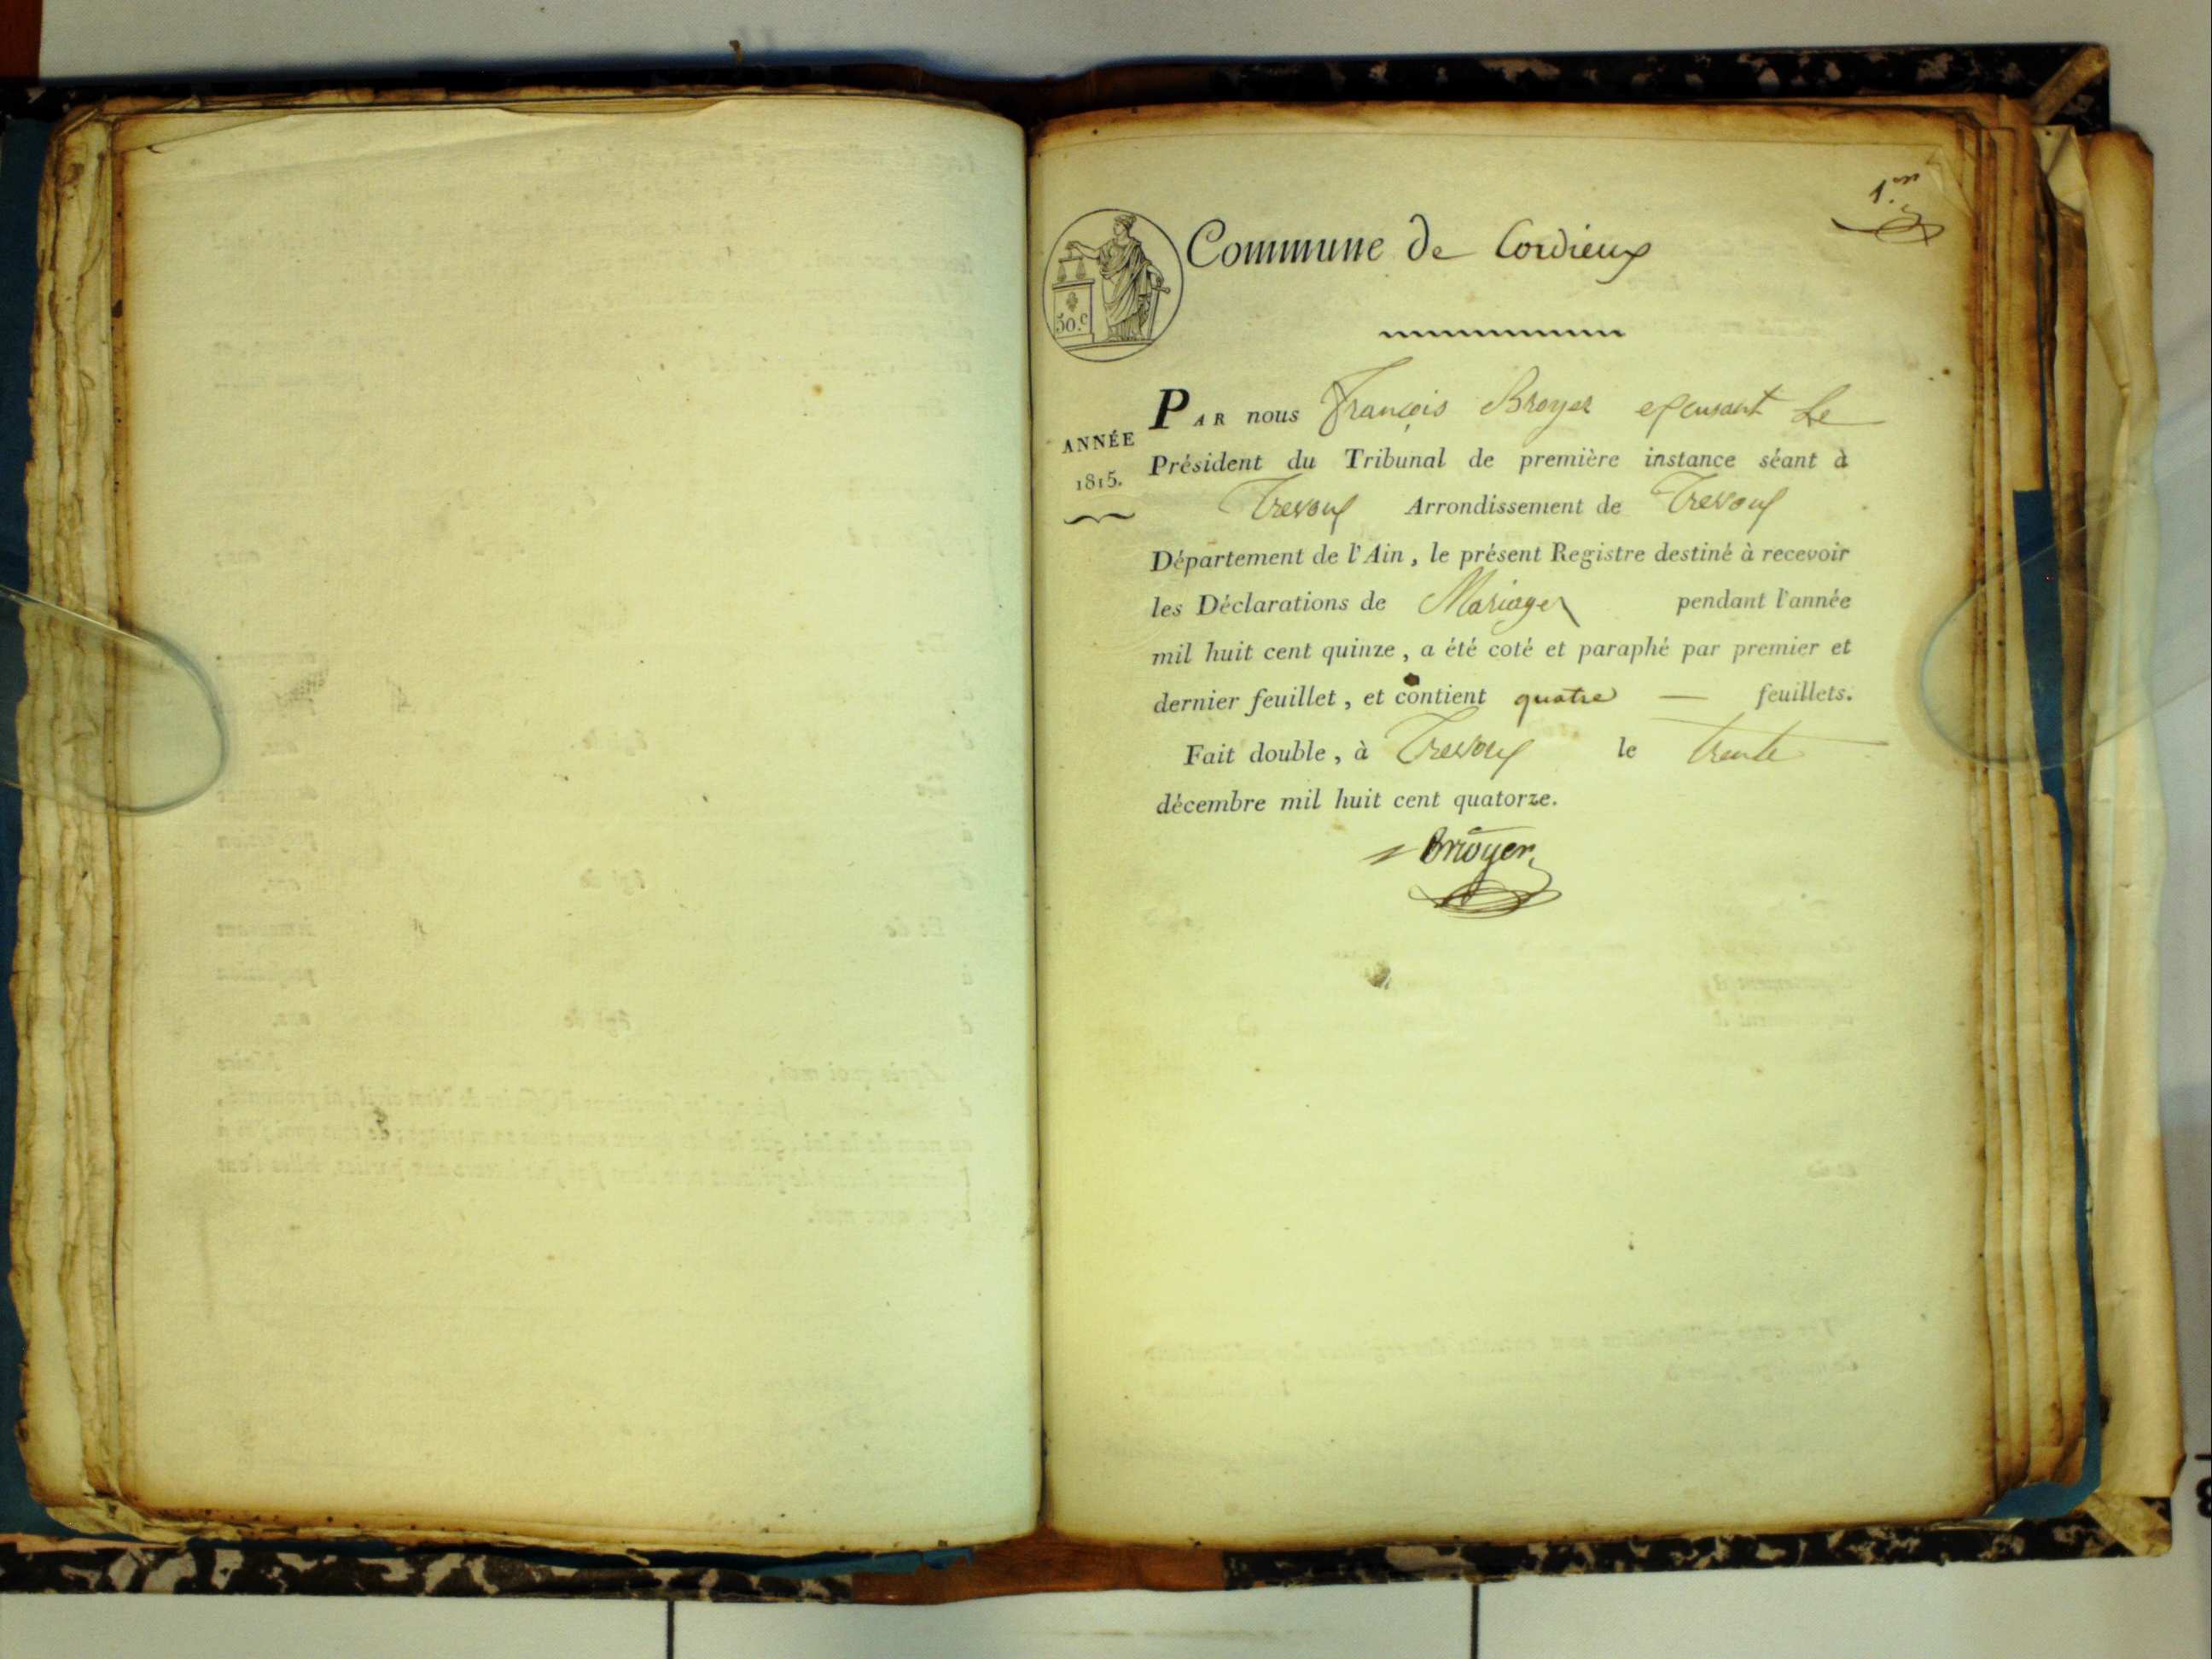 1.er
Commune de Cordieux
50.c
PAR nous François Broyer le
ANNÉE
Président du Tribunal de première instance séant à
1815.
Trevoux Arrondissement de Trevoux
Département de l'Ain, le présent Registre destiné à recevoir
les Déclarations de Mariages pendant l'année
mil huit cent quinze, a été coté et paraphé par premier et
dernier feuillet, et contient quatre — feuillets.
Fait double, à Trevoux le trente
décembre mil huit cent quatorze.
Broyer